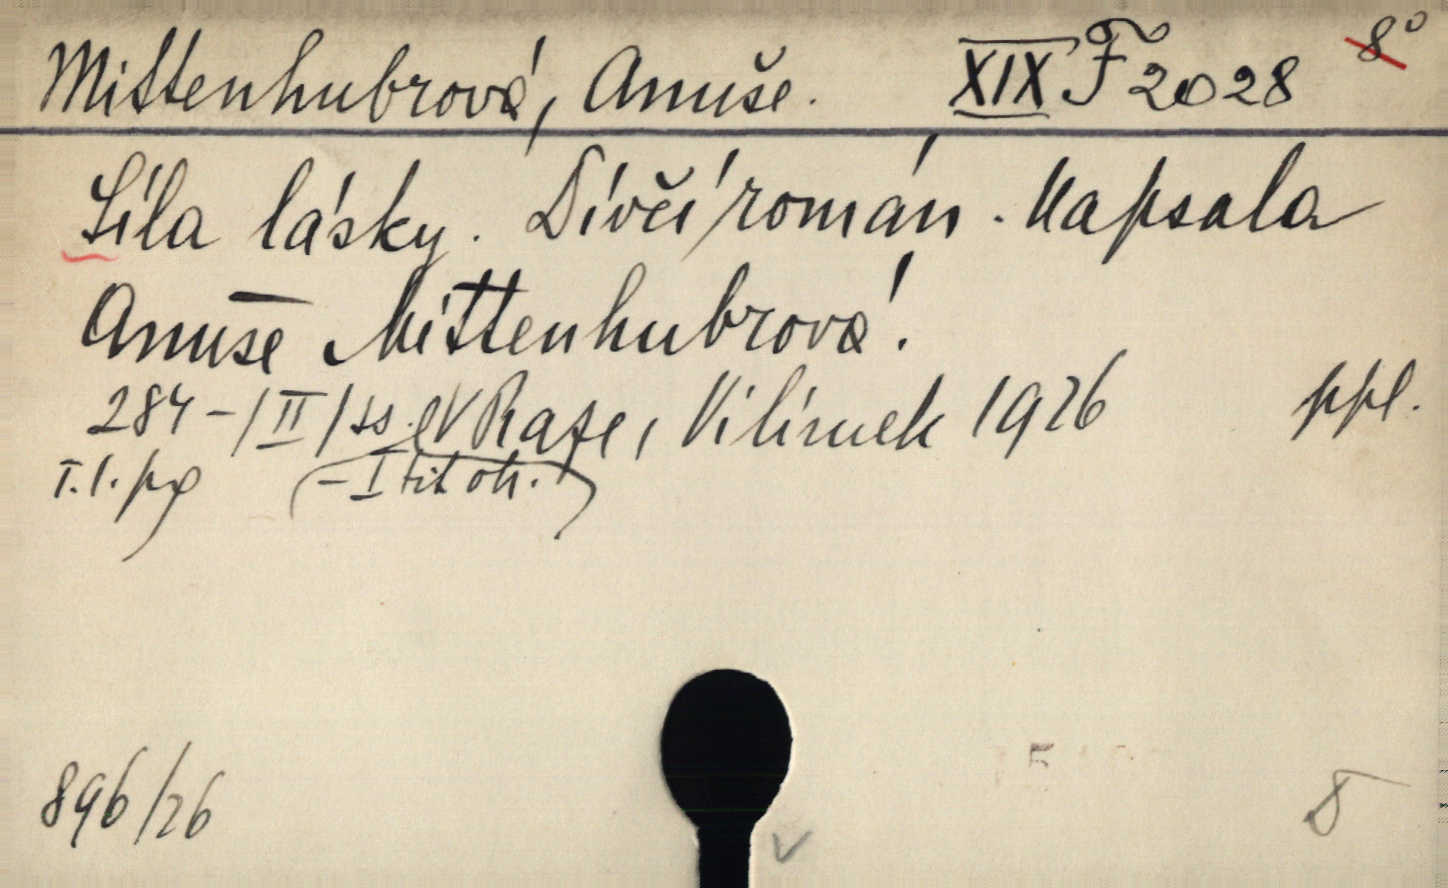 Mittenhubrová, Anuše. XIX F 2028 8°
Síla lásky. Dívčí román. Napsala
Anuše Mittenhubrová.
284-/II/ss. V Praze, Vilímek 1926 ppl.
(-I tit ob.)
896/26